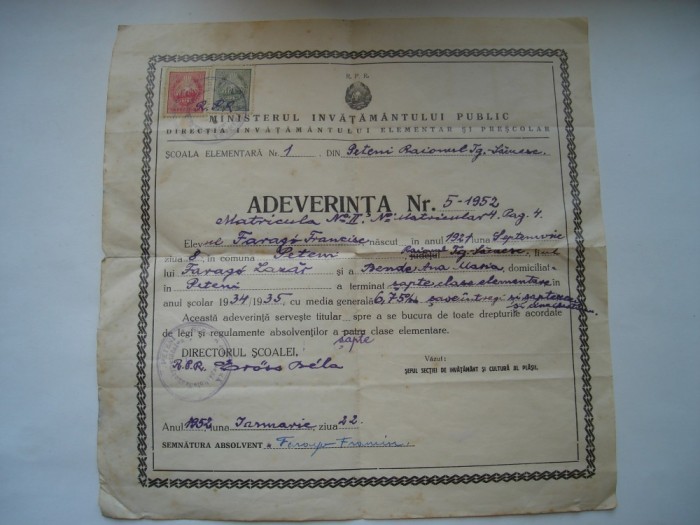 R. P. R.
MINISTERUL INVĂŢĂMÂNTULUI PUBLIC
DIRECŢIA INVĂŢĂMÂNTULUI ELEMENTAR ŞI PREŞCOLAR
ŞCOALA ELEMENTARĂ Nr. 1 DIN Peteni Raionul Tg. Săcuesc.
ADEVERINŢA Nr. 5-1952
Matricula No. II. No. Matricular 4. Pag. 4.
Elevul Faragó Francisc născut în anul 1921 luna Septemvrie
ziua 8, în comuna Peteni judeţul Raionul Tg. Săcuesc,
lui Faragó Lazăr şi a Bende Ana Maria, domiciliat
în Peteni a terminat şapte clase elementare în
anul şcolar 1934/1935, cu media generală 6,75% şase întregi şi şaptezeci
Această adeverinţă serveşte titular spre a se bucura de toate drepturile acordate
de legi şi regulamente absolvenţilor a patru clase elementare.
şapte
DIRECTORUL ŞCOALEI,
Béla
Văzut:
ŞEFUL SECŢIEI DE INVĂŢĂMÂNT ŞI CULTURĂ AL PLĂŞII.
Anul 1952 luna Ianuarie, ziua 22.
SEMNĂTURA ABSOLVENT a